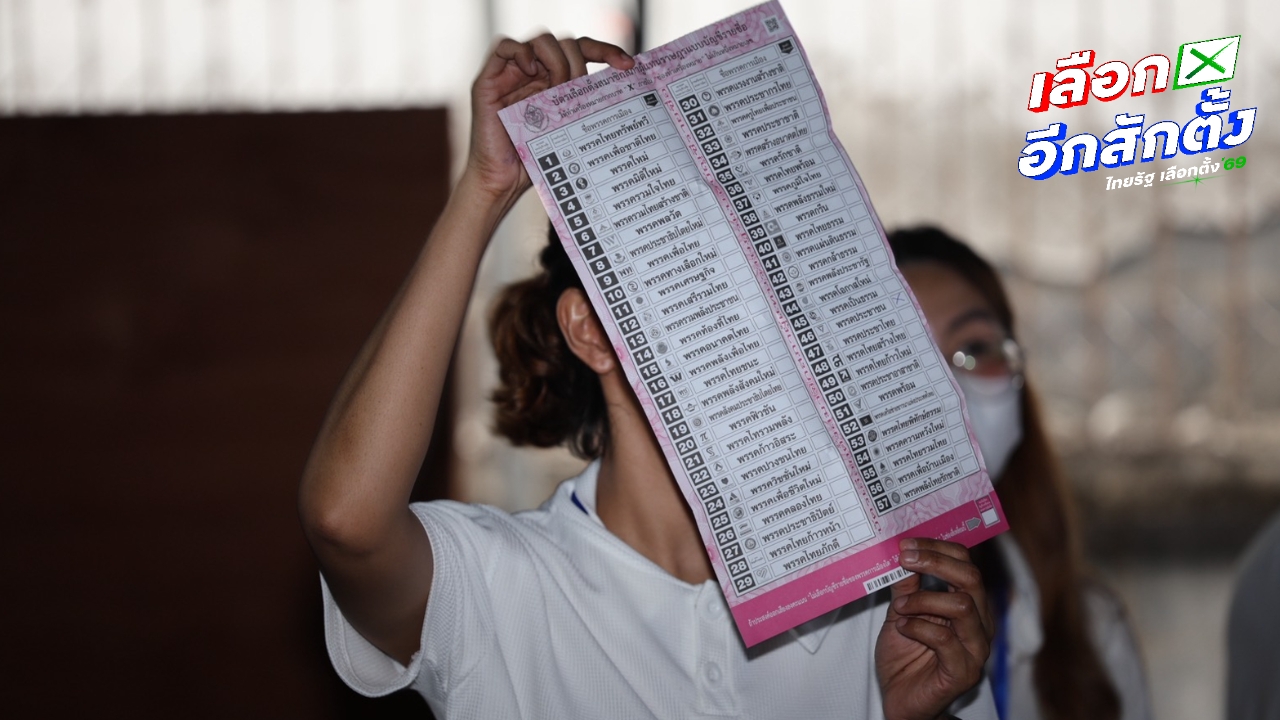 เลือก
อีกสักตั้ง
ไทยรัฐ เลือกตั้ง'69
บัตรเลือกตั้งสมาชิกสภาผู้แทนราษฎรแบบบัญชีรายชื่อ
ชื่อพรรคการเมือง
1 พรรคไทยทรัพย์ทวี
2 พรรคเพื่อชาติไทย
3 พรรคใหม่
4 พรรคมิติใหม่
5 พรรครวมใจไทย
6 พรรครวมไทยสร้างชาติ
7 พรรคพลวัต
8 พรรคประชาธิปไตยใหม่
9 พรรคเพื่อไทย
10 พรรคทางเลือกใหม่
11 พรรคเศรษฐกิจ
12 พรรคเสรีรวมไทย
13 พรรครวมพลังประชาชน
14 พรรคท้องที่ไทย
15 พรรคอนาคตไทย
16 พรรคพลังเพื่อไทย
17 พรรคไทยชนะ
18 พรรคพลังสังคมใหม่
19 พรรคสังคมประชาธิปไตยไทย
20 พรรคฟิวชัน
21 พรรคไทรวมพลัง
22 พรรคก้าวอิสระ
23 พรรคปวงชนไทย
24 พรรควิชชั่นใหม่
25 พรรคเพื่อชีวิตใหม่
26 พรรคคลองไทย
27 พรรคประชาธิปัตย์
28 พรรคไทยก้าวหน้า
29 พรรคไทยภักดี
ชื่อพรรคการเมือง
30 พรรคแรงงานสร้างชาติ
31 พรรคประชากรไทย
32 พรรคครูไทยเพื่อประชาชน
33 พรรคประชาชาติ
34 พรรคสร้างอนาคตไทย
35 พรรครักชาติ
36 พรรคไทยพร้อม
37 พรรคภูมิใจไทย
38 พรรคพลังธรรมใหม่
39 พรรคกรีน
40 พรรคไทยธรรม
41 พรรคแผ่นดินธรรม
42 พรรคกล้าธรรม
43 พรรคพลังประชารัฐ
44 พรรคโอกาสใหม่
45 พรรคเป็นธรรม
46 พรรคประชาชน
47 พรรคประชาไทย
48 พรรคไทยสร้างไทย
49 พรรคไทยก้าวใหม่
50 พรรคประชาอาสาชาติ
51 พรรคพร้อม
52
53 พรรคไทยพิทักษ์ธรรม
54 พรรคความหวังใหม่
55 พรรคไทยรวมไทย
56 พรรคเพื่อบ้านเมือง
57 พรรคพลังไทยรักชาติ